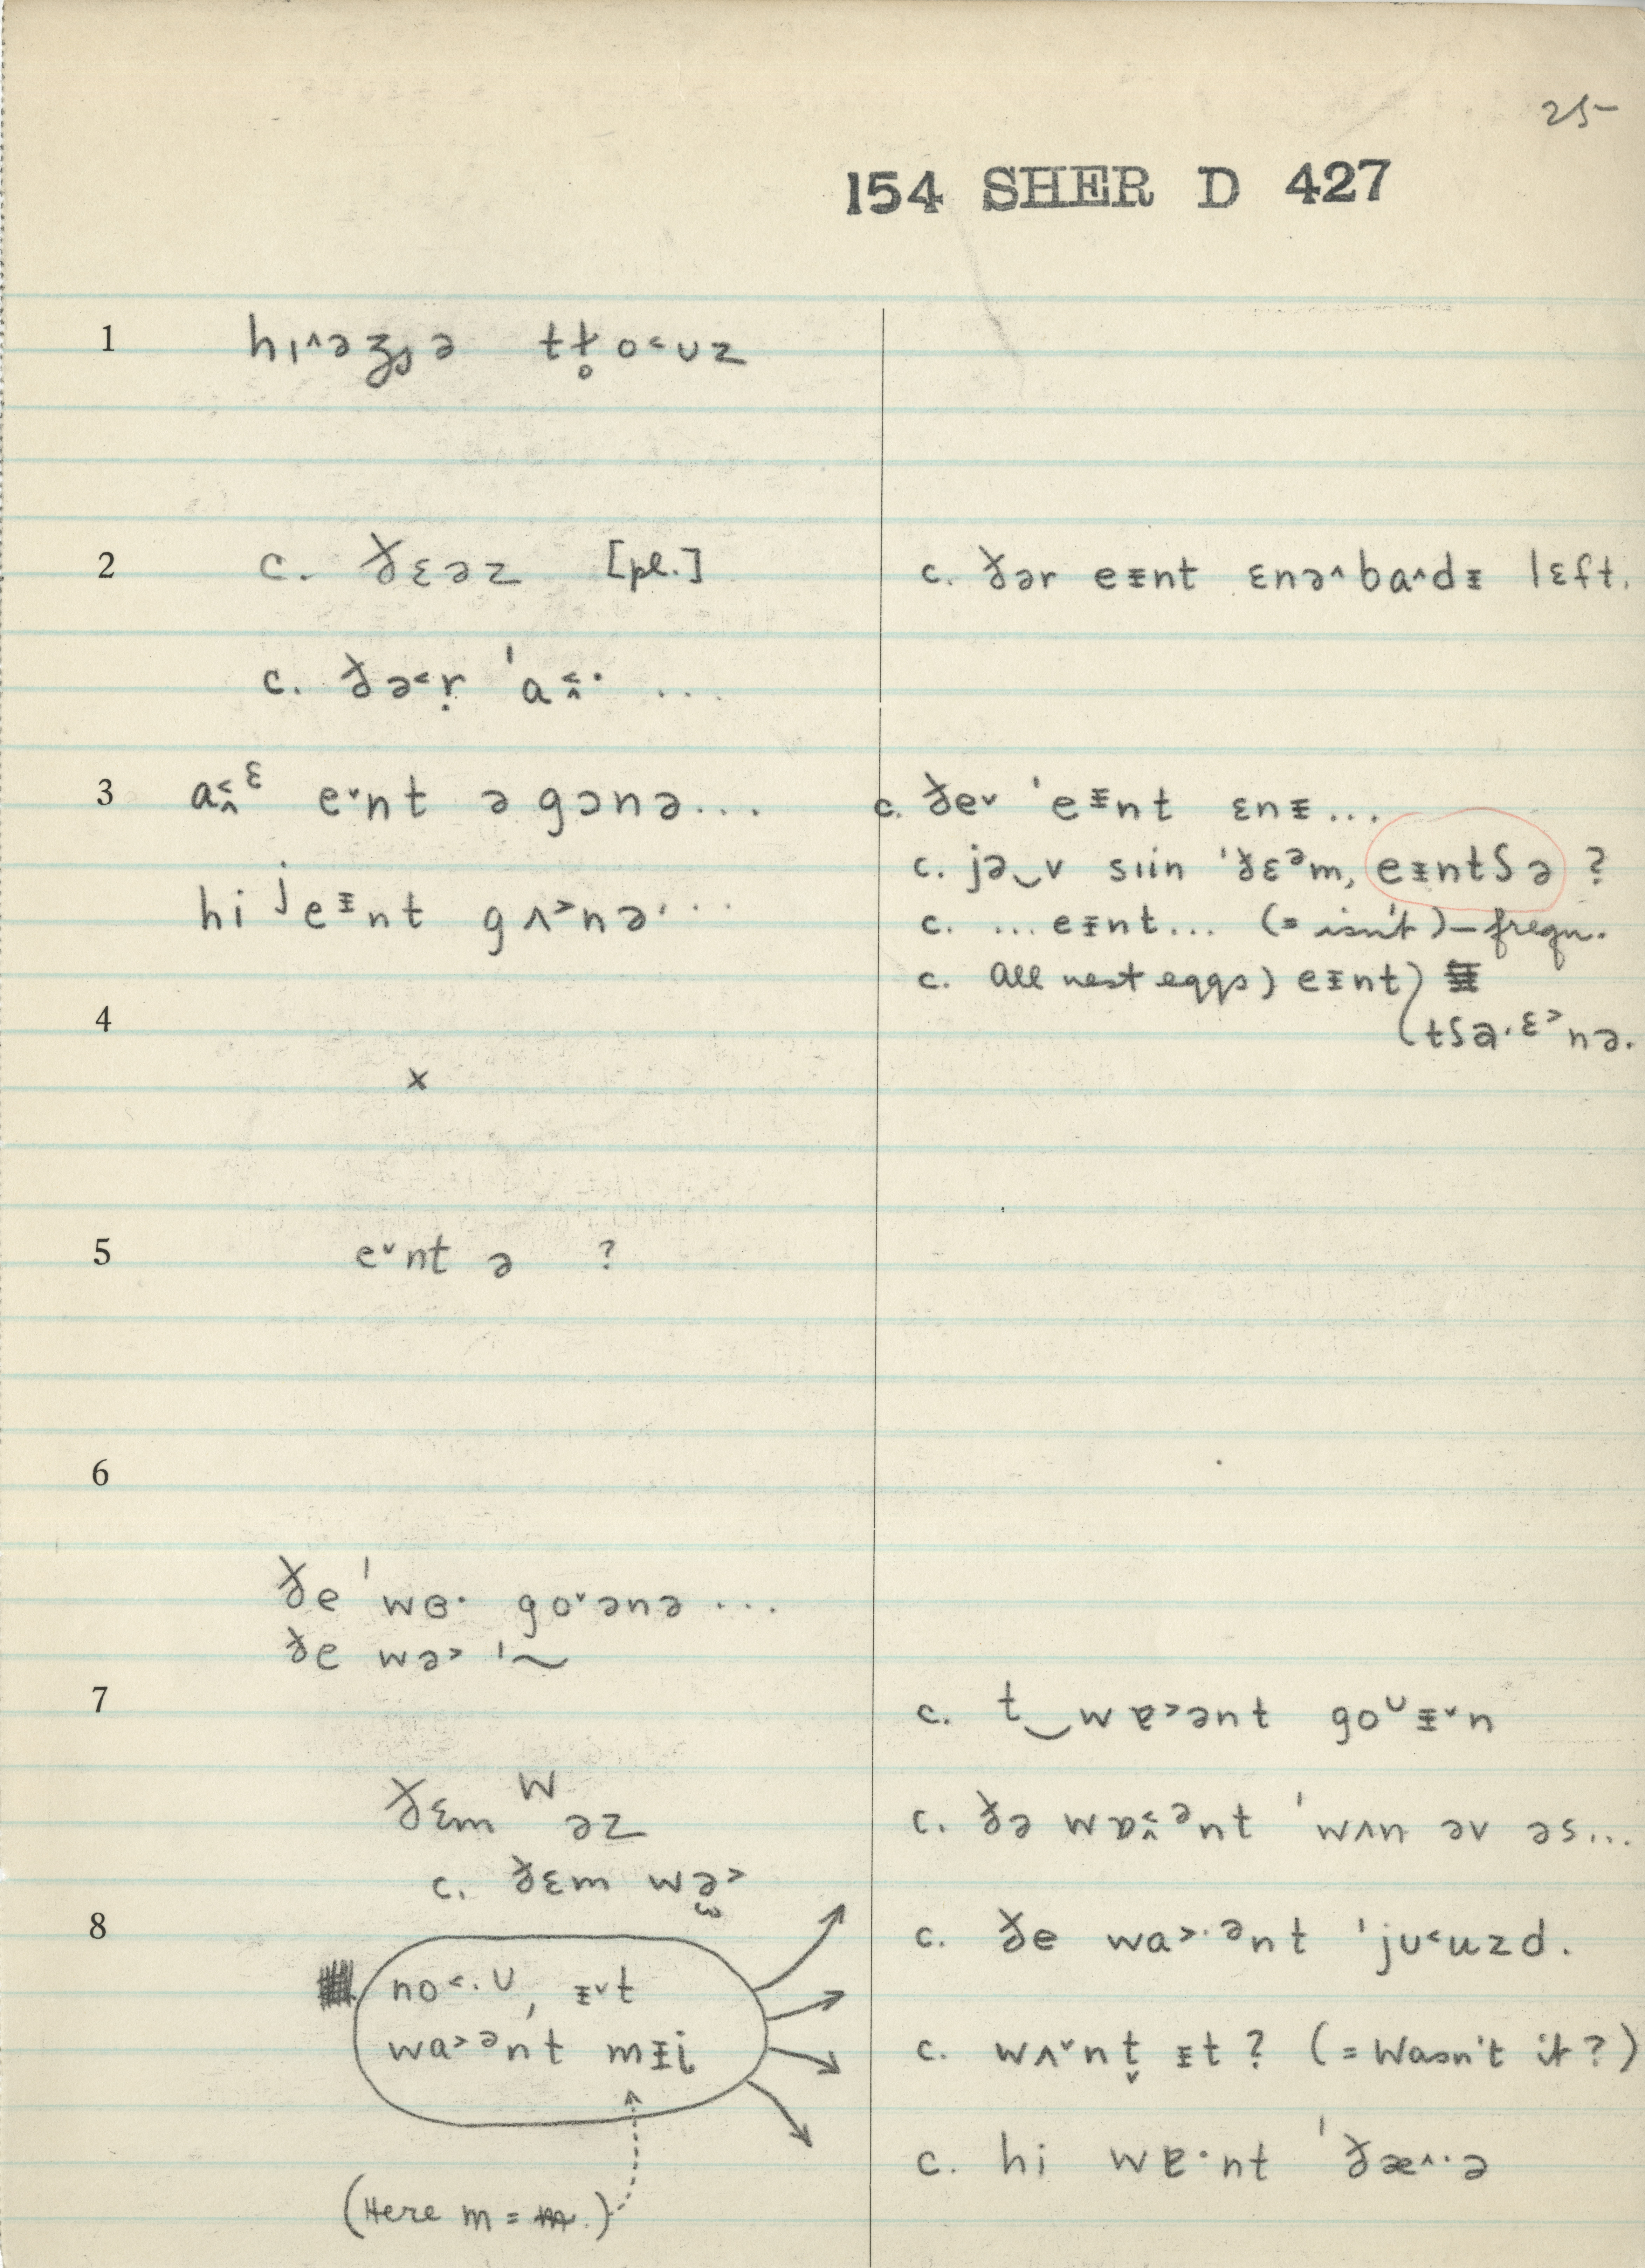 25
154 SHER D 427
1 hɪ^əʒə tt̥o˂ʊz
2 c. ðɛəz [pl.]
c. ðər eɪnt ɛnə^ba^dɪ lɛft.
c. ðə˂ṛ ˈa ...
3 eˇnt ə gɔnə...
c. ðeˇ ˈeɪnt ɛnɪ...
c. jə‿v sɪin ˈðɛᵊm, eɪntʃə ?
hi ʲeɪnt gʌ˃nə...
c. ...eɪnt... (= isn't) – frequ.
c. All nest eggs) eɪnt)
(tʃə.ɛ˃nə.
4
x
5 eˇnt ə ?
6
ðe ˈwɞ· goˇənə ...
ðe wə˃ ˈ~
7
c. t‿wɐ˃ənt goᶷɪˇn
ðɛm wəz
c. ðə ˈwʌn əv əs...
c. ðɛm wə˃
8
c. ðe wa˃·ᵊnt ˈjʊ˂uzd.
no˂·ʊ, ɪˇt
wa˃ᵊnt mɪi
c. wʌˇnt̬ ɪt? (= Wasn't it?)
c. hi wɐ·nt ˈðæ^·ə
(Here m = m.)